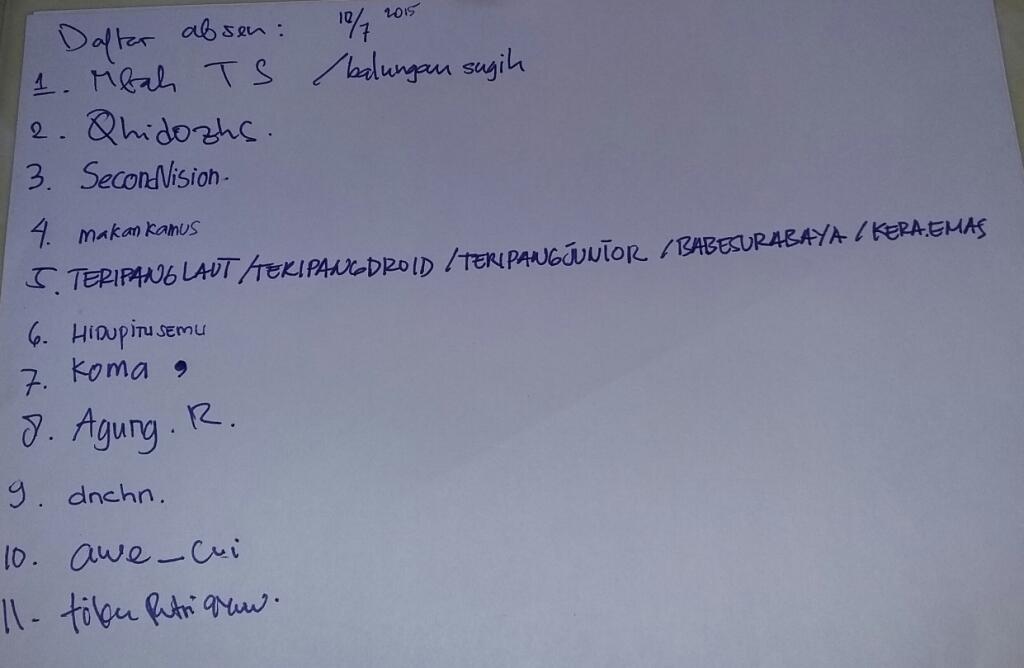 Daftar absen: 12/7 2015
1. Mbah TS /balungan sugih
2. Qhidozhs.
3. SecondVision.
4. makan kamus
5. TERIPANG LAUT /TERIPANGDROID /TERIPANGJUNIOR /BABESURABAYA /KERA.EMAS
6. HIDUPITUSEMU
7. Koma ,
8. Agung. R.
9. dnchn.
10. awe_cui
11. Putri